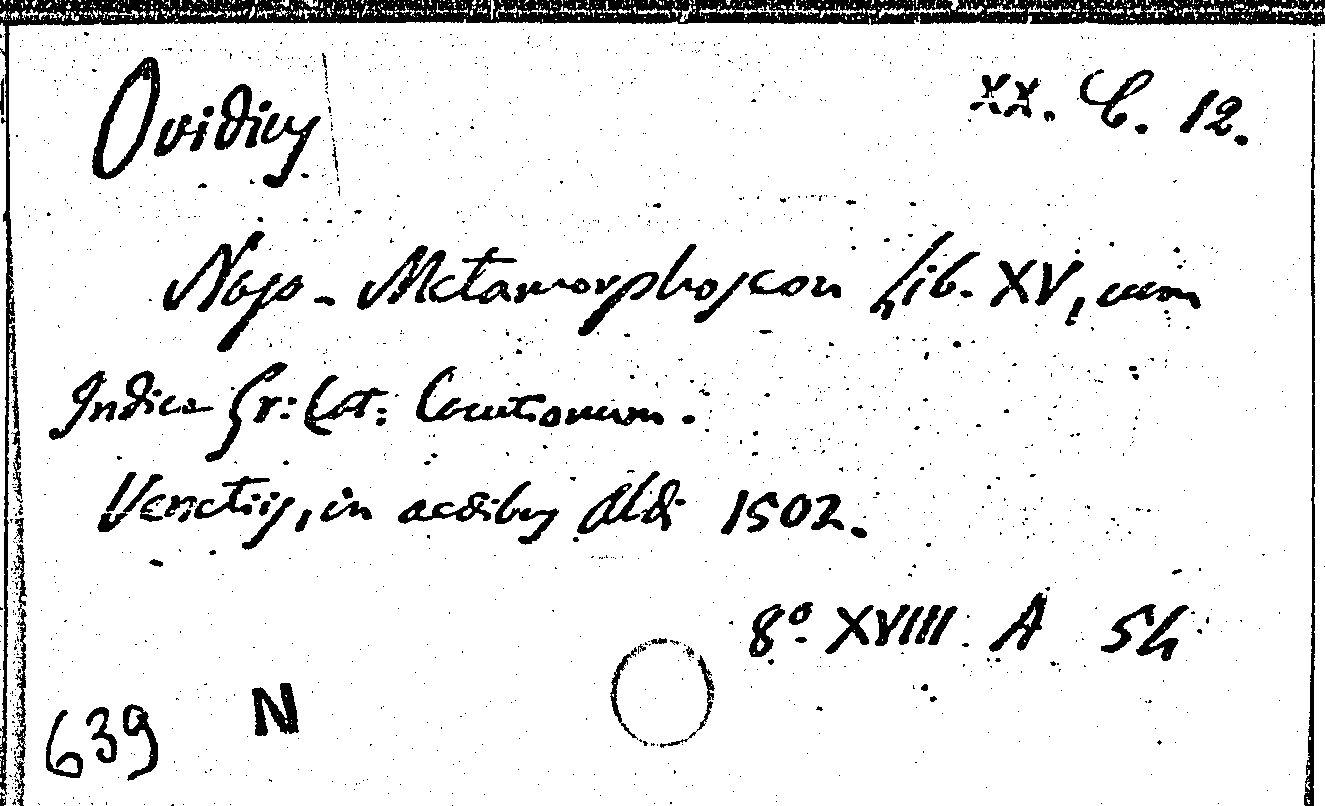 Ovidius XX. C. 12.
Naso - Metamorphoseon Lib. XV, cum
Indice Gr: Lat: Locutionum.
Venetiis, in aedibus Aldi 1502.
8º XVIII A 54
639 N